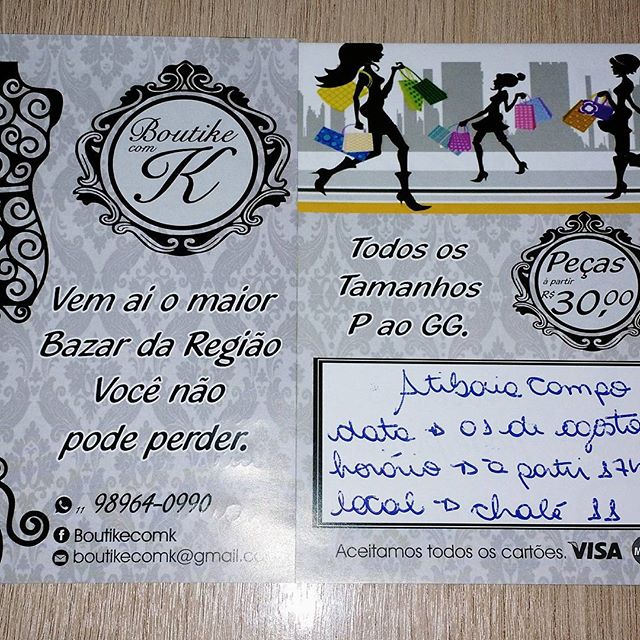 Boutike
com
K
Vem ai o maior
Bazar da Região
Você não
pode perder.
11 98964-0990
Boutikecomk
boutikecomk@gmail.co
Todos os
Tamanhos
P ao GG.
Peças
à partir
R$ 30,00
Atibaia Campo
data → 01 de agosto
horário → à partir 17h
local → chalé 11
Aceitamos todos os cartões. VISA